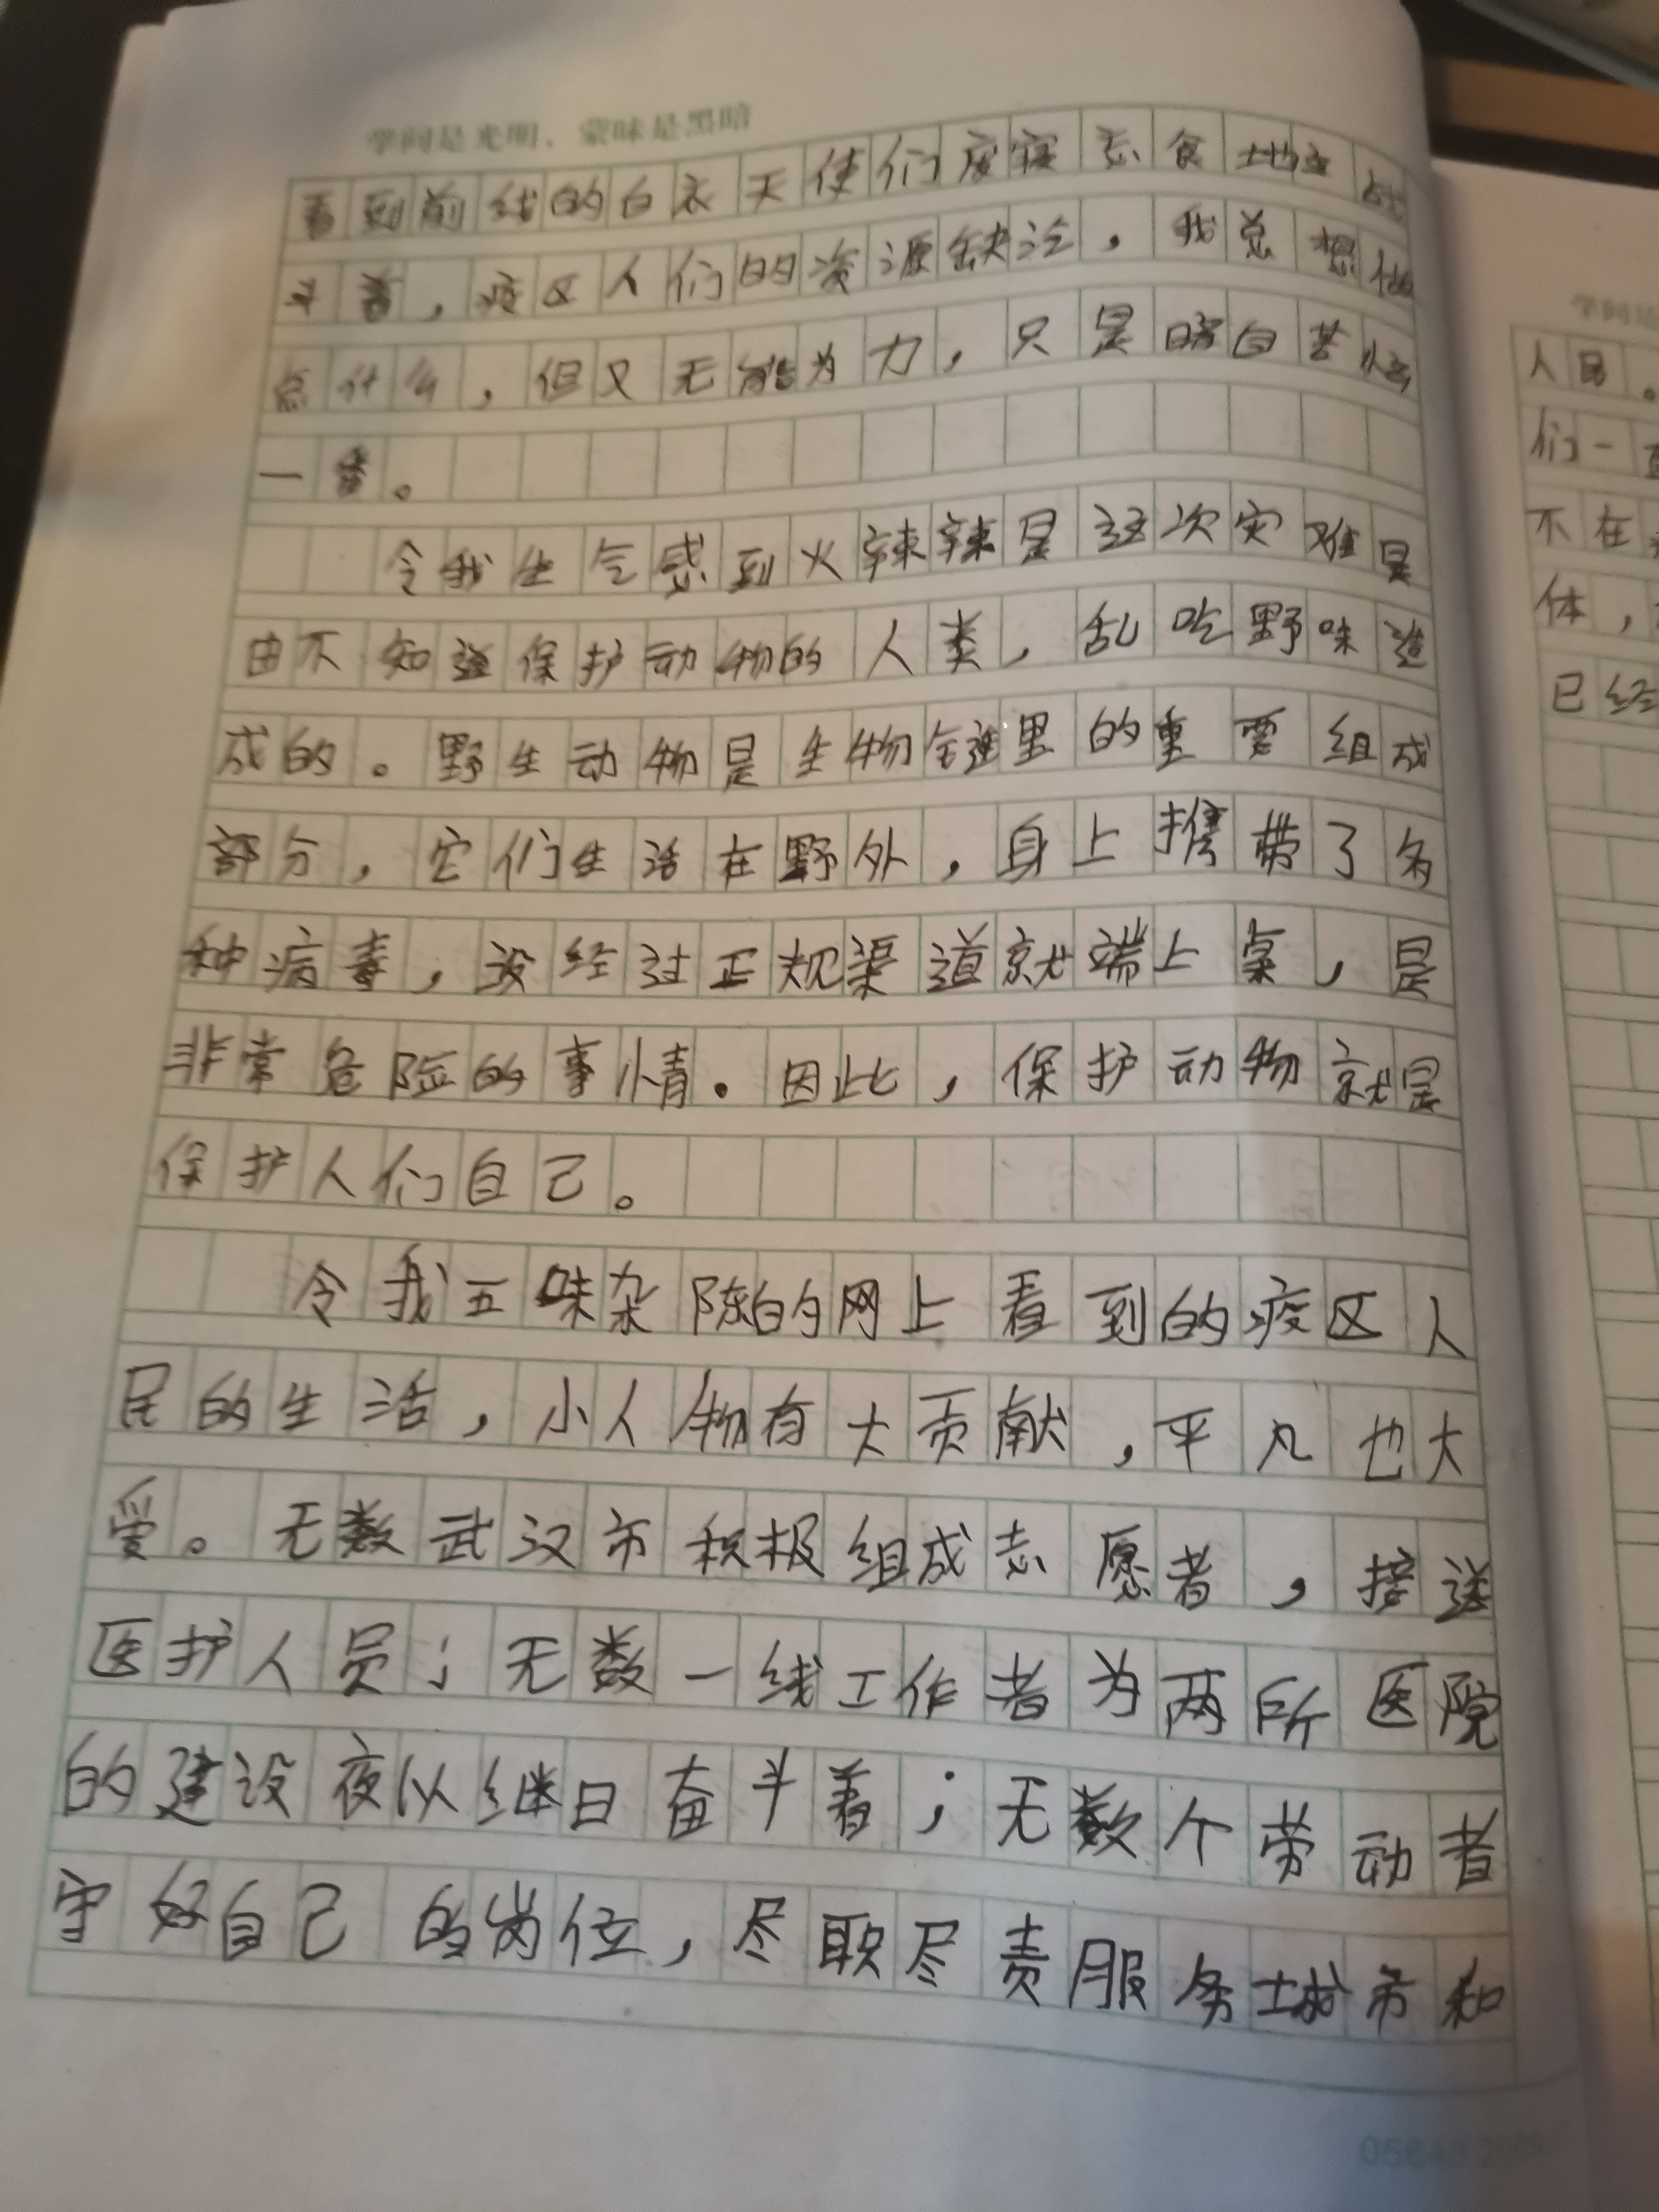 学问是光明，蒙昧是黑暗
看到前线的白衣天使们废寝忘食地战
斗着，疫区人们的资源缺泛，我总想做
点什么，但又无能为力，只是暗自苦恼
一番。
令我生气感到火辣辣是这次灾难是
由不知道保护动物的人类，乱吃野味造
成的。野生动物是生物链里的重要组成
部分，它们生活在野外，身上携带了各
种病毒，没经过正规渠道就端上桌，是
非常危险的事情。因此，保护动物就是
保护人们自己。
令我五味杂陈的网上看到的疫区人
民的生活，小人物有大贡献，平凡也大
爱。无数武汉市积极组成志愿者，接送
医护人员；无数一线工作者为两所医院
的建设夜以继日奋斗着；无数个劳动者
守好自己的岗位，尽职尽责服务城市和
学问是
人民。
们一直
不在
体，
已经